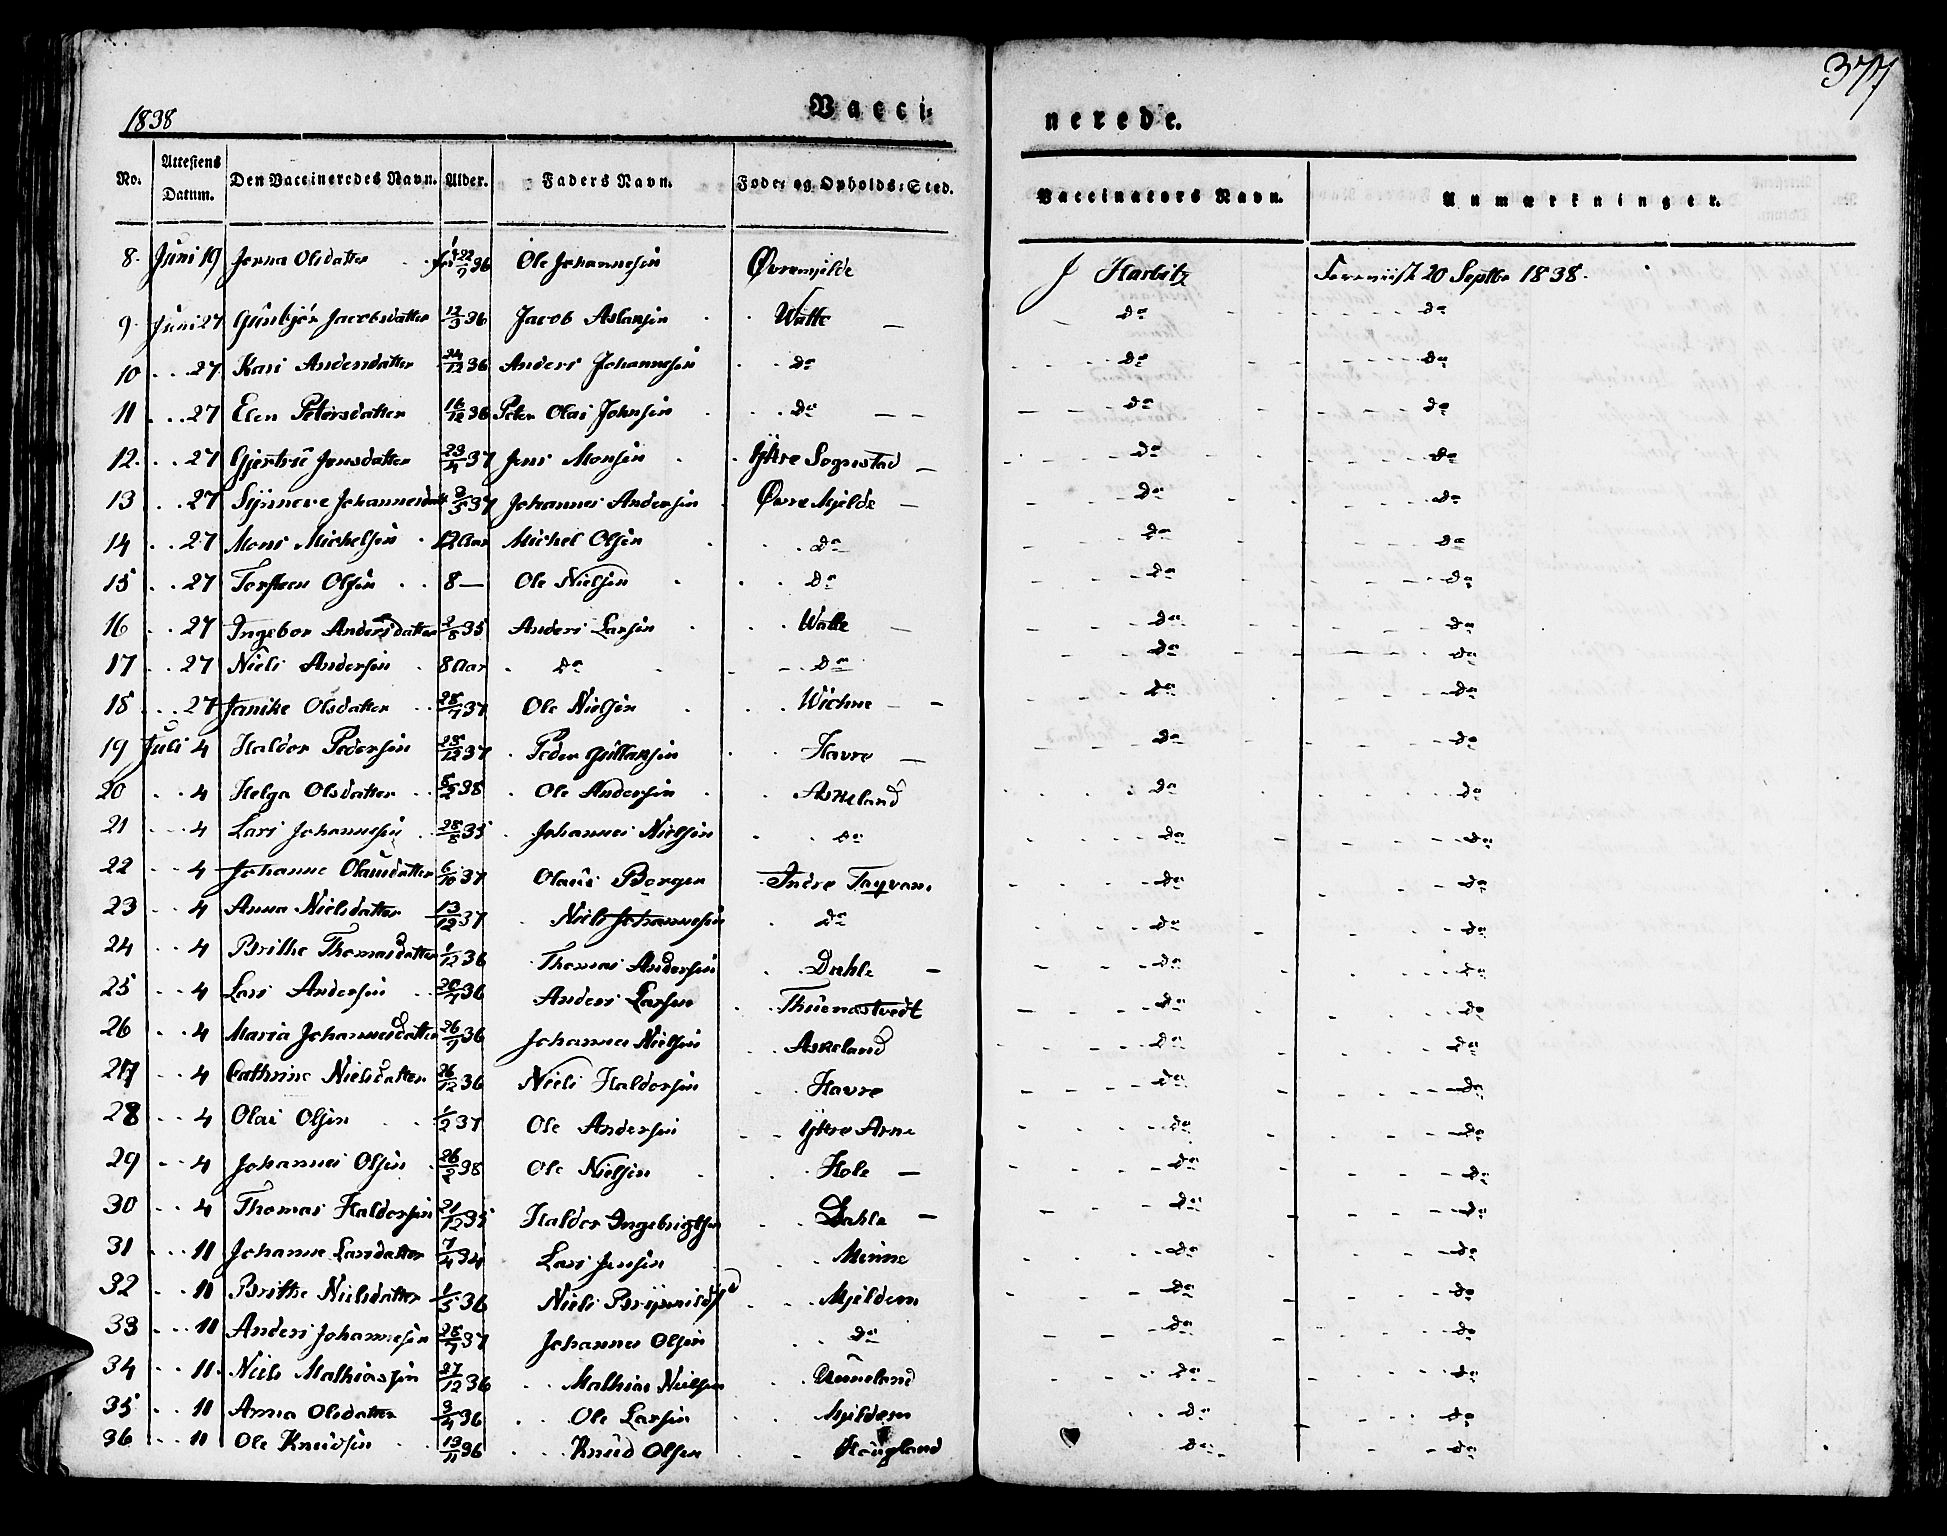 377
1838 Vacci- nerede.
No. Attestens Datum. Den Vaccineredes Navn. Alder. Faders Navn. Føde- og Opholds-Sted. Vaccinators Navn. Anmærkninger.
8. Juni 19 Olsdatter 22/9 36 Ole Johannesen Øvremjelde J Harbitz 20 Septbr 1838.
9. Juni 27 Gunbjør Jacobsdatter 12/3 36 Jacob Aslaksen Watte do do
10 27 Kari Andersdatter 24/12 36 Anders Johannesen do do do
11 27 Elen Petersdatter 16/12 36 Peter Olai Johnsen do do do
12 27 Gjertrü Jensdatter 23/4 37 Jens Monsen Ijttre Sognstad do do
13 27 Synneve Johannesdatt 2/3 37 Johannes Andersen Øvre Mjelde do do
14 27 Mons Michelsen 12 Aar Michel Olsen do do do
15 27 Torsteen Olsen 8 — Ole Nielsen do do do
16 27 Ingebor Andersdatter 2/8 35 Anders Larsen Watte do do
17 27 Niels Andersen 8 Aar do do do do
18 27 Janike Olsdatter 28/7 37 Ole Nielsen Wichne do do
19 Juli 4 Haldor Pedersen 28/12 37 Peder Gullaksen Havre do do
20 4 Helga Olsdatter 8/2 38 Ole Andersen Askeland do do
21 4 Lars Johannesen 28/8 35 Johannes Nielsen do do do
22 4 Johanne Olausdatter 6/10 37 Olaus Borgen Indre do do
23 4 Anna Nielsdatter 13/12 37 Niels Johannesen do do do
24 4 Brithe Thomasdatter 1/12 36 Thomas Andersen Dahle do do
25 4 Lars Andersen 20/7 36 Anders Larsen Thuenastvedt do do
26 4 Maria Johannesdatter 26/7 36 Johannes Nielsen Askeland do do
27 4 Cathrine Nielsdatter 26/12 36 Niels Haldorsen Havre do do
28 4 Olai Olsen 1/2 37 Ole Andersen Ijttre Arne do do
29 4 Johannes Olsen 26/2 38 Ole Nielsen Hole do do
30 4 Thomas Haldorsen 21/12 35 Haldor Ingebrigtsen Dahle do do
31 11 Johanne Larsdatter 7/4 34 Lars Jensen Minne do do
32 11 Brithe Nielsdatter 1/3 36 Niels Mjeldem do do
33 11 Anders Johannesen 28/7 37 Johannes Olsen do do do
34 11 Niels Mathiassen 27/12 36 Mathias Nielsen Unneland do do
35 11 Anna Olsdatter 3/4 36 Ole Larsen Mjeldem do do
36 11 Ole Knudsen 13/11 36 Knud Olsen Hougland do do